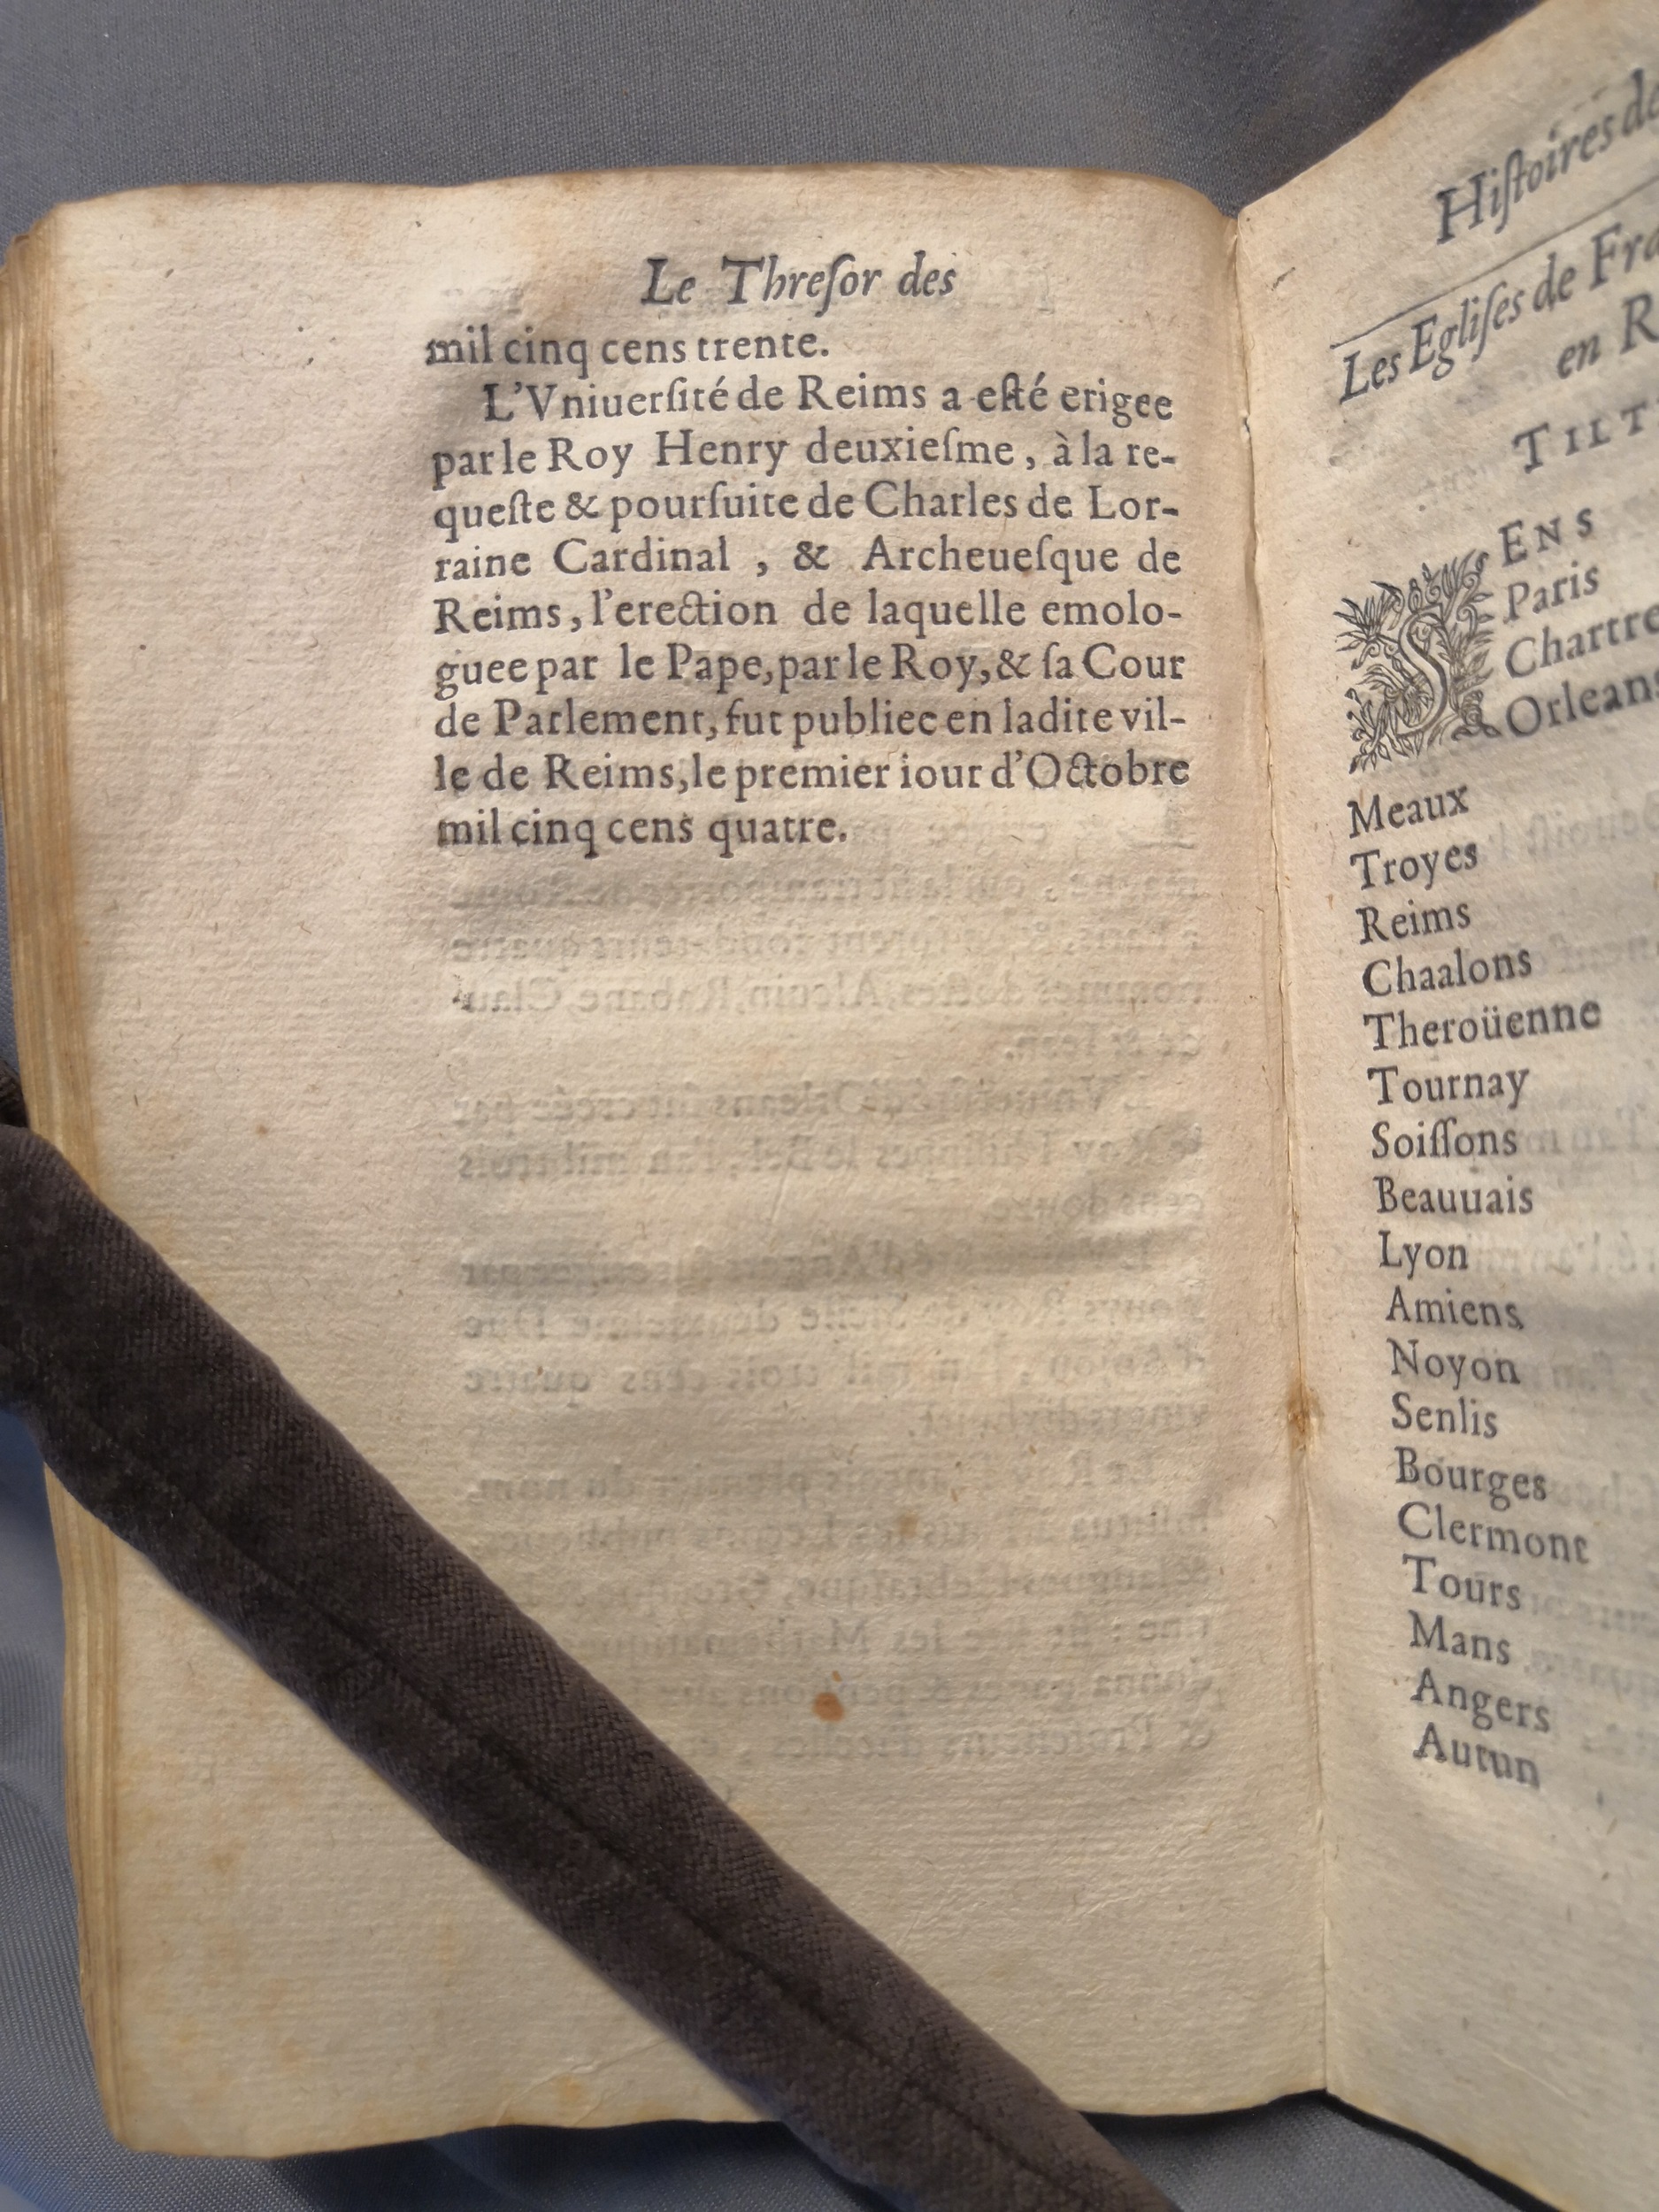 Le Threſor des
mil cinq cens trente.
L'Vniuerſité de Reims a eſté erigee
par le Roy Henry deuxieſme, à la re-
queſte & pourſuite de Charles de Lor-
raine Cardinal , & Archeueſque de
Reims, l'erection de laquelle emolo-
guee par le Pape, par le Roy, & ſa Cour
de Parlement, fut publiee en ladite vil-
le de Reims, le premier iour d'Octobre
mil cinq cens quatre.
Hiſtoires de
Les Egliſes de
en
SENS
Paris
Orleans
Meaux
Troyes
Reims
Chaalons
Theroüenne
Tournay
Soiſſons
Beauuais
Lyon
Amiens
Noyon
Senlis
Bourges
Clermont
Tours
Mans
Angers
Autun